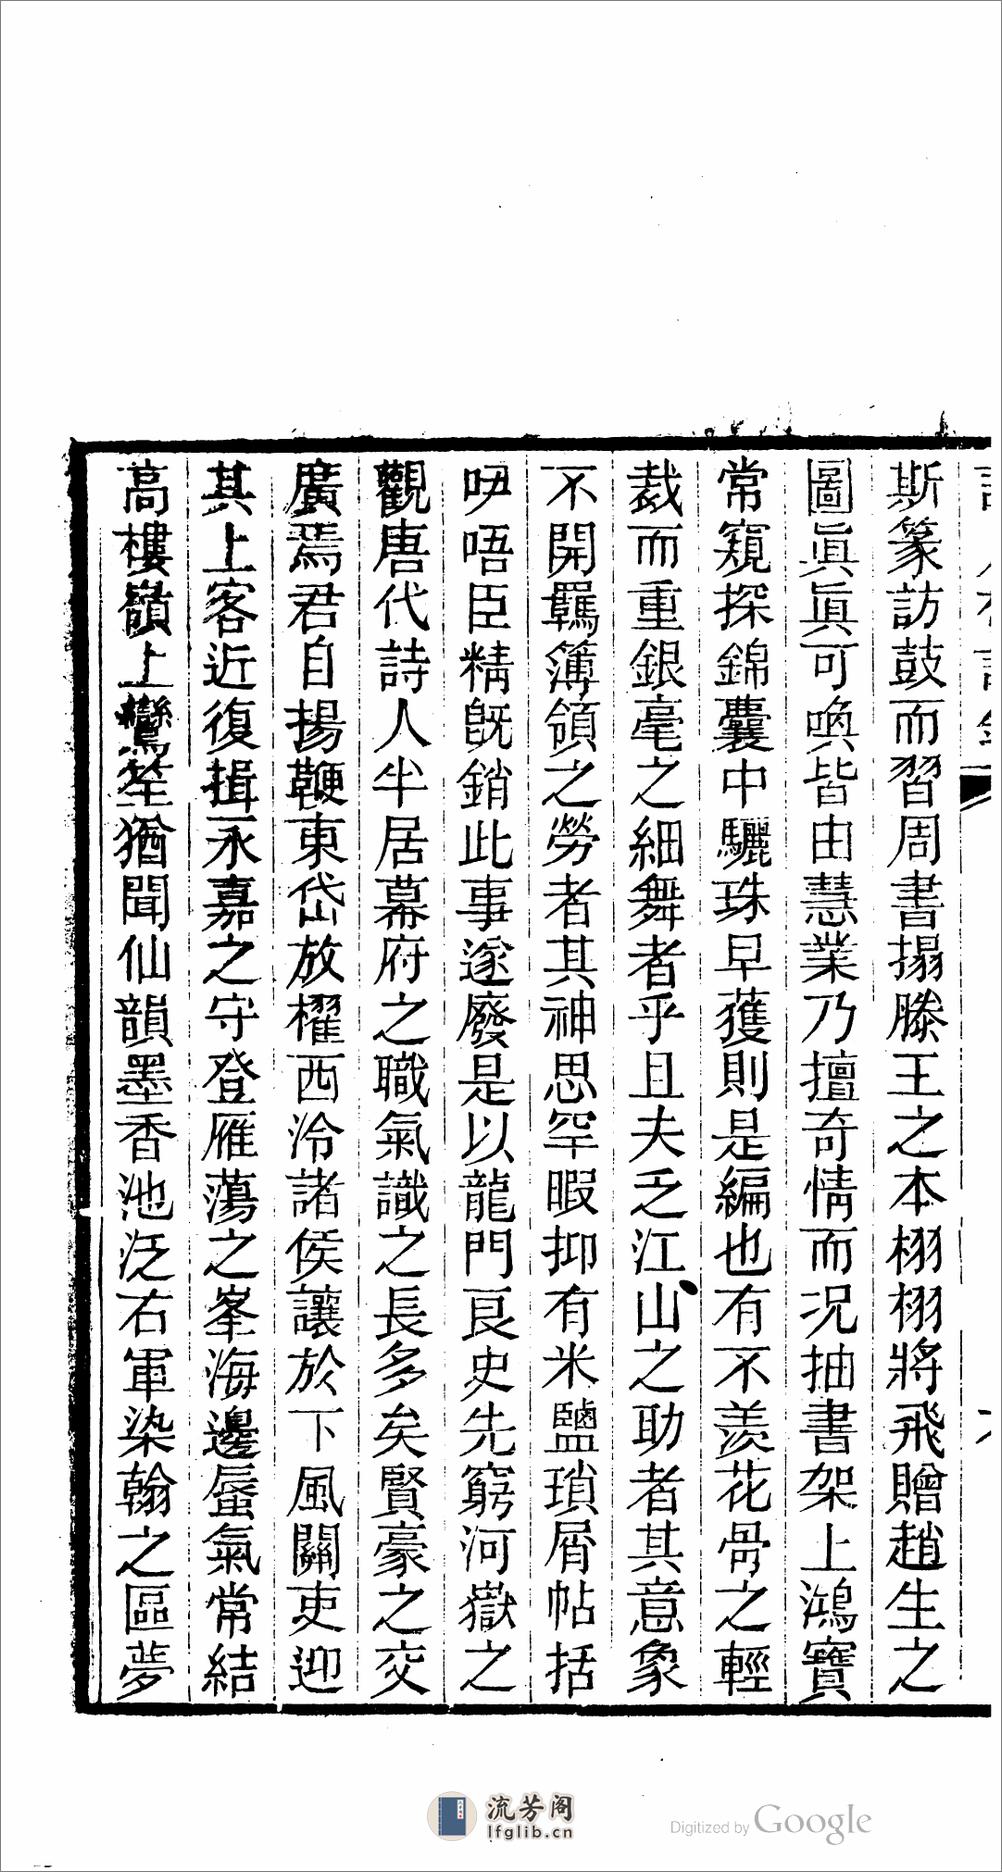 斯篆訪鼓而習周書搨滕王之本栩栩將飛贈趙生之
圖眞眞可喚皆由慧業乃擅奇情而況抽書架上鴻寶
常窺探錦囊中驪珠早獲則是編也有不羨花骨之輕
裁而重銀毫之細舞者乎且夫乏江山之助者其意象
不開羈簿領之勞者其神思罕暇抑有米鹽瑣屑帖括
吚唔臣精旣銷此事遂廢是以龍門良史先窮河嶽之
觀唐代詩人半居幕府之職氣識之長多矣賢豪之交
廣焉君自揚鞭東岱放櫂西泠諸侯讓於下風關吏迎
其上客近復揖永嘉之守登雁蕩之峯海邊蜃氣常結
高樓嶺上鸞笙猶聞仙韻墨香池泛右軍染翰之區夢
流芳阁
lfglib.cn
Digitized by Google